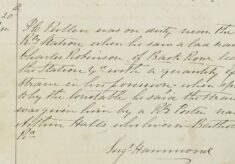 30
P.C. Pullen was on duty near the
Rly Station when he saw a lad named
Charles Robinson, of Back Lane leave
the Station Yd with a quantity of
straw in his possession when spoken
by the Constable, he said the straw
was given him by a Rly Porter named
Halls who lives in
Rd
Sergt Hammond